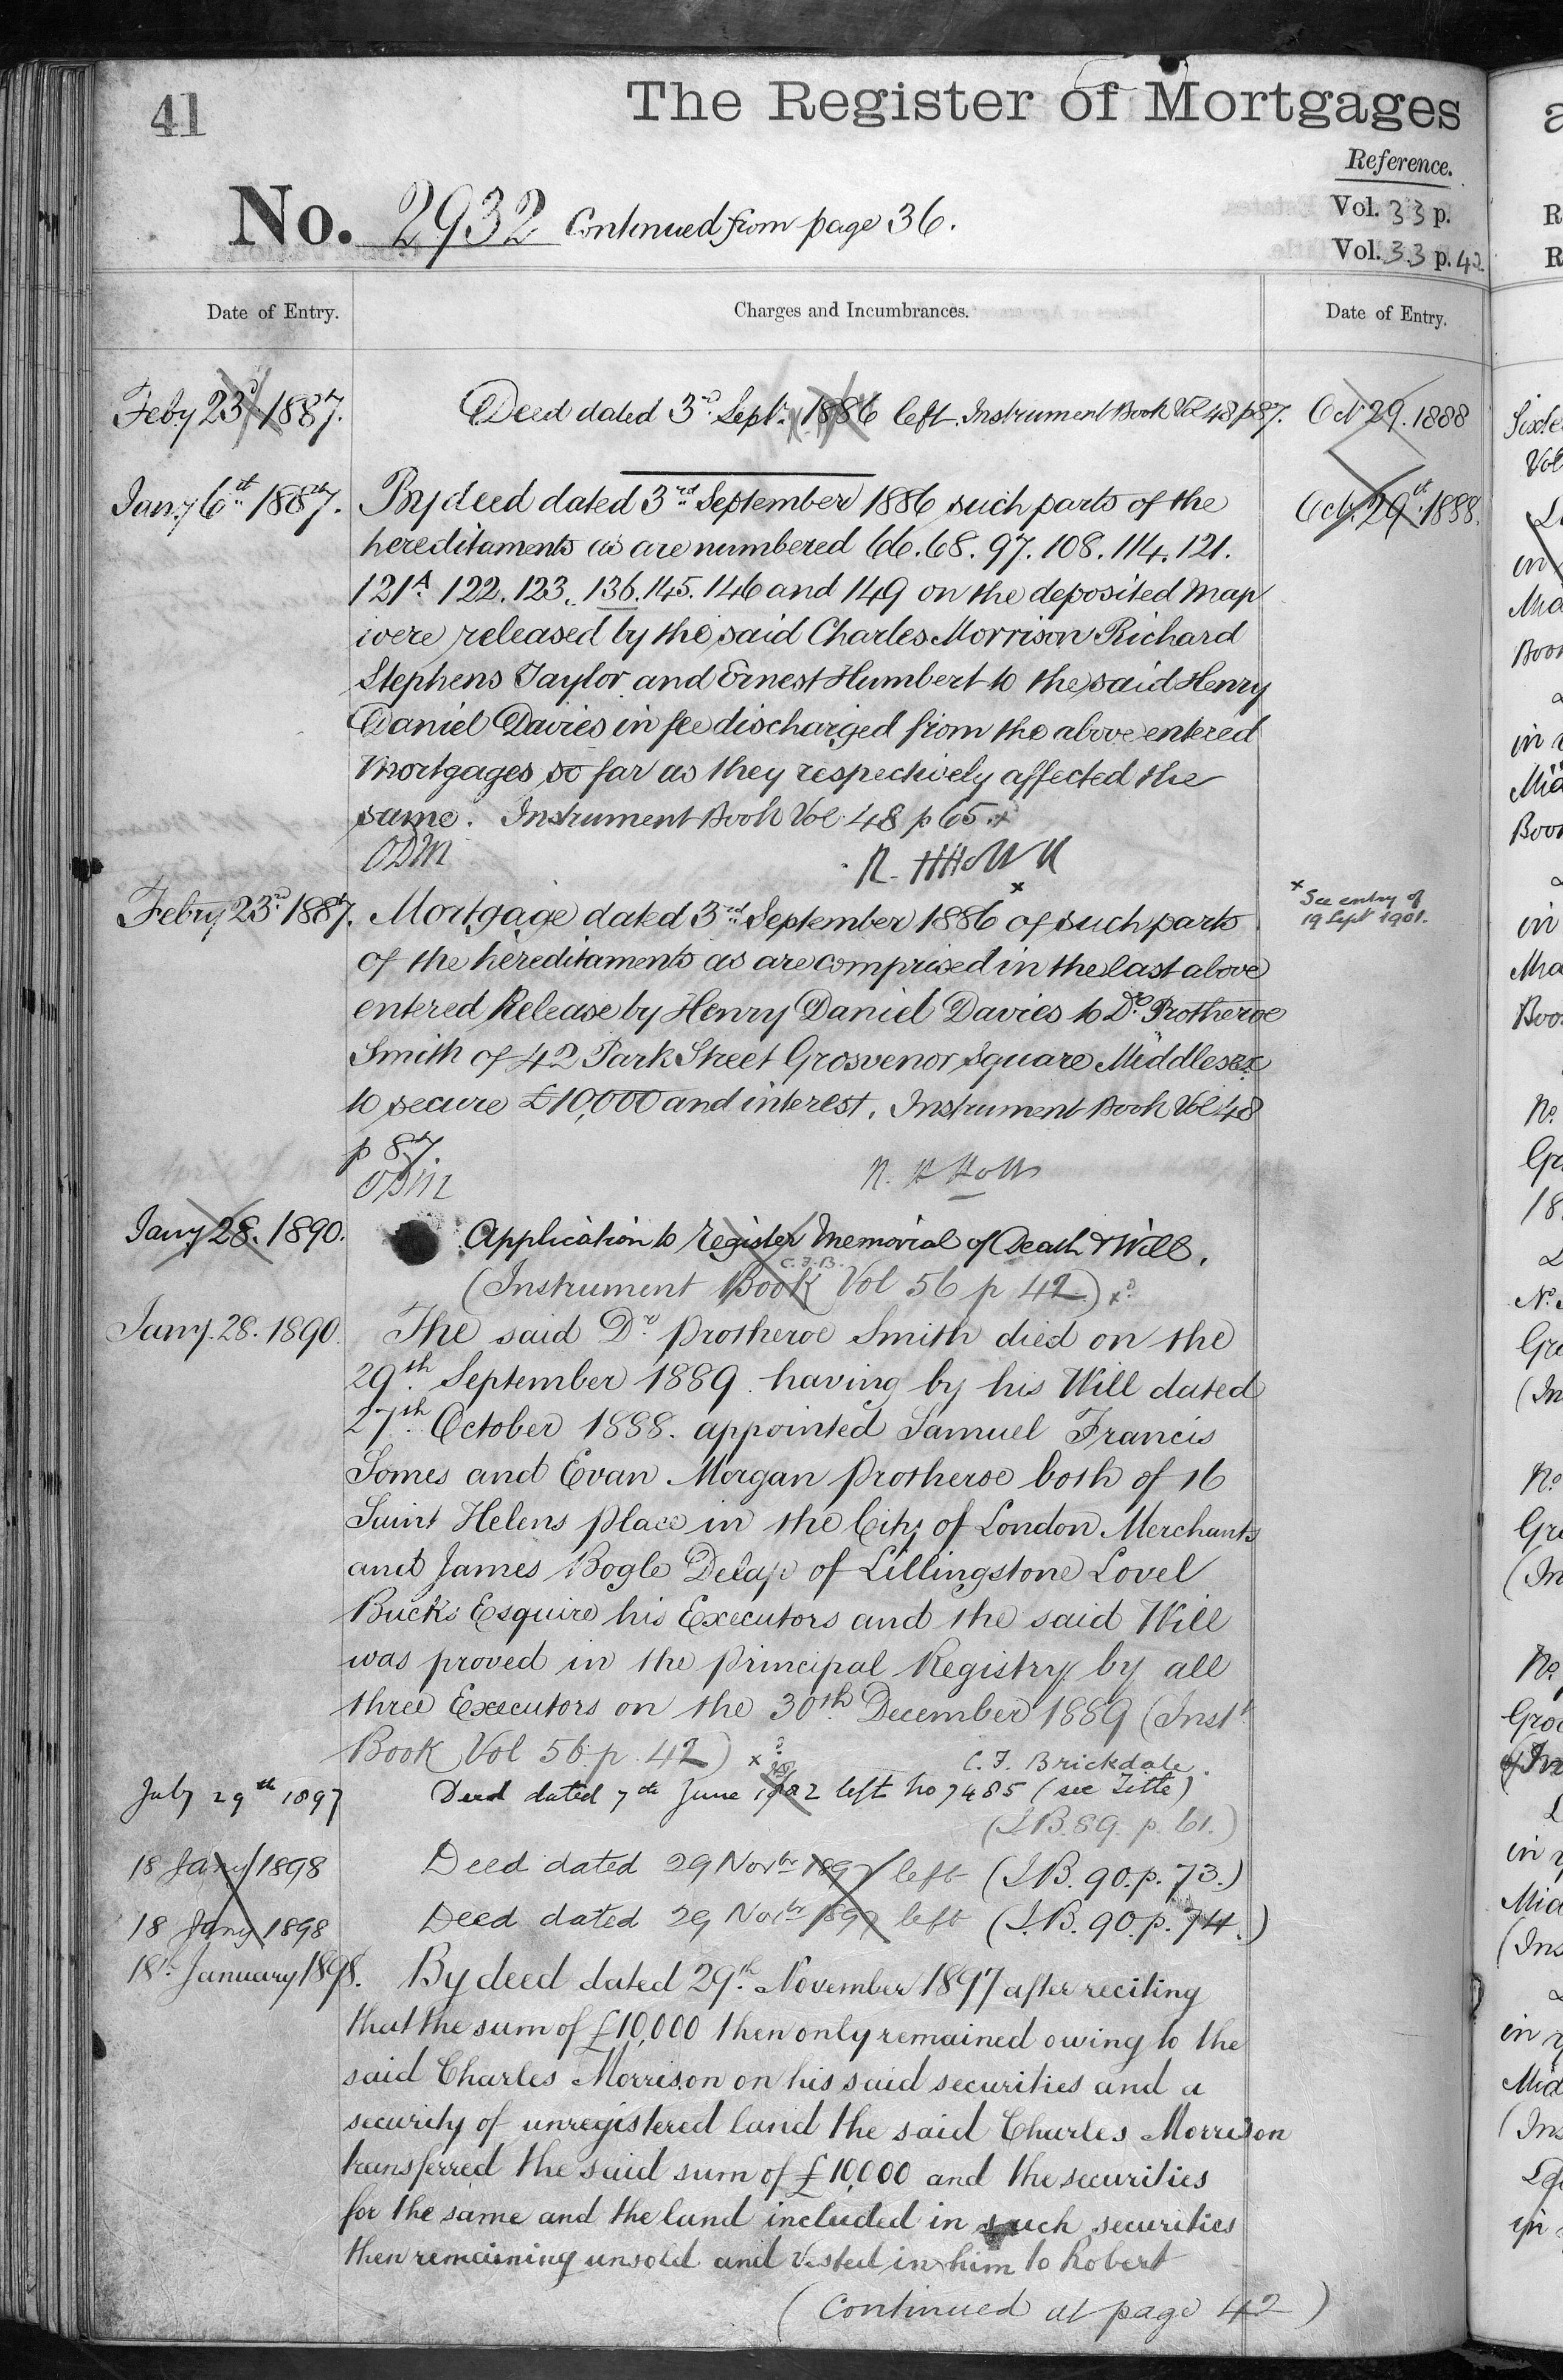 41
The Register of Mortgages
Reference.
No. 2932 Continued from page 36.
Vol. 33 p.
Vol. 33 p. 42
Date of Entry.
Charges and Incumbrances.
Date of Entry.
Feby 23d 1887. Deed dated 3rd Septr. 1886 left. Instrument Book Vol 48 p 87. Oct 29. 1888
Jany 6th 1887. By deed dated 3rd September 1886 such parts of the Oct. 29th 1888.
hereditaments as are numbered 66. 68. 97. 108. 114. 121.
121A. 122. 123. 136. 145. 146 and 149 on the deposited map
were released by the said Charles Morrison Richard
Stephens Taylor and Ernest Humbert to the said Henry
Daniel Davies in fee discharged from the above entered
Mortgages so far as they respectively affected the
same. Instrument Book Vol. 48 p 65. x
ODM
Febry 23rd 1887. Mortgage dated 3rd September 1886 x of such parts
x See entry of
19 Sept 1901.
of the hereditaments as are comprised in the last above
entered Release by Henry Daniel Davies to Dr. Protheroe
Smith of 42 Park Street Grosvenor Square Middlesex
to secure £10,000 and interest. Instrument Book Vol 48
p 87.
ODM
Jany 28. 1890. Application to register Memorial of Death & Will.
C.F.B.
(Instrument Book Vol 56 p 42) x
Jany. 28. 1890. The said Dr. Protheroe Smith died on the
29th September 1889 having by his Will dated
27th October 1888. appointed Samuel Francis
Somes and Evan Morgan Protheroe both of 16
Saint Helens Place in the City of London Merchants
and James Bogle Delap of Lillingstone Lovel
Bucks Esquire his Executors and the said Will
was proved in the Principal Registry by all
three Executors on the 30th December 1889 (Inst
Book Vol 56 p. 42) x C. F. Brickdale.
July 29th 1897 Deed dated 7th June left No 7485 (see Title)
(I.B. 89. p. 61.)
18 Jany 1898 Deed dated 29 Novbr 1897 left (I.B. 90. p. 73.)
18 Jany 1898 Deed dated 29 Novbr 1897 left (I.B. 90. p. 74.)
18th January 1898. By deed dated 29th November 1897 after reciting
that the sum of £10,000 then only remained owing to the
said Charles Morrison on his said securities and a
security of unregistered land the said Charles Morrison
transferred the said sum of £10,000 and the securities
for the same and the land included in such securities
then remaining unsold and vested in him to Robert
(Continued at page 42)